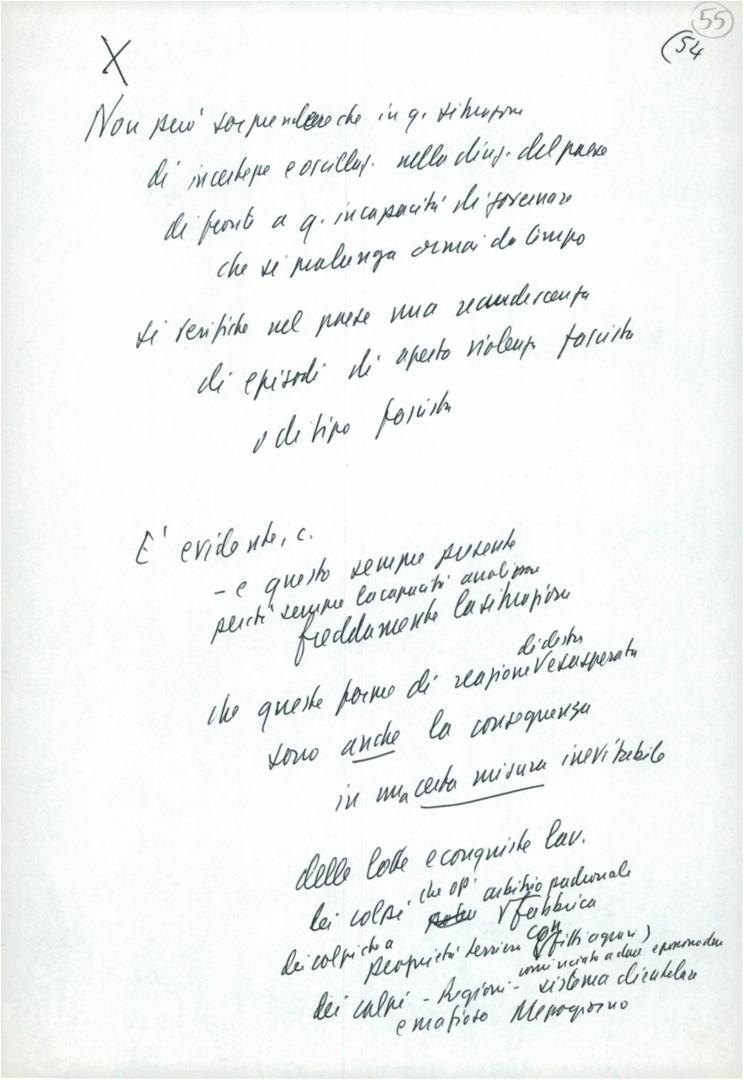 55
(54
X
Non può sorprendere che in q. situazione
di incertezze e oscillaz. nella direz. del paese
di fronte a q. incapacità di governare
che si prolunga ormai da tempo
si verifichi nel paese una recrudescenza
di episodi di aperta violenza fascista
o di tipo fascista
E' evidente, c.
- e questo sempre presente
perché sempre la capacità analizzare
freddamente la situazione
che queste forme di reazione di destra esasperata
sono anche la conseguenza
in una certa misura inevitabile
delle lotte e conquiste lav.
dei colpi che op. arbitrio padronale
fabbrica
dei colpi che a proprietà terriera con (fitti agrari)
cominciato a dare e possono dare
dei colpi - Regioni - sistema clientelare
e mafioso Mezzogiorno